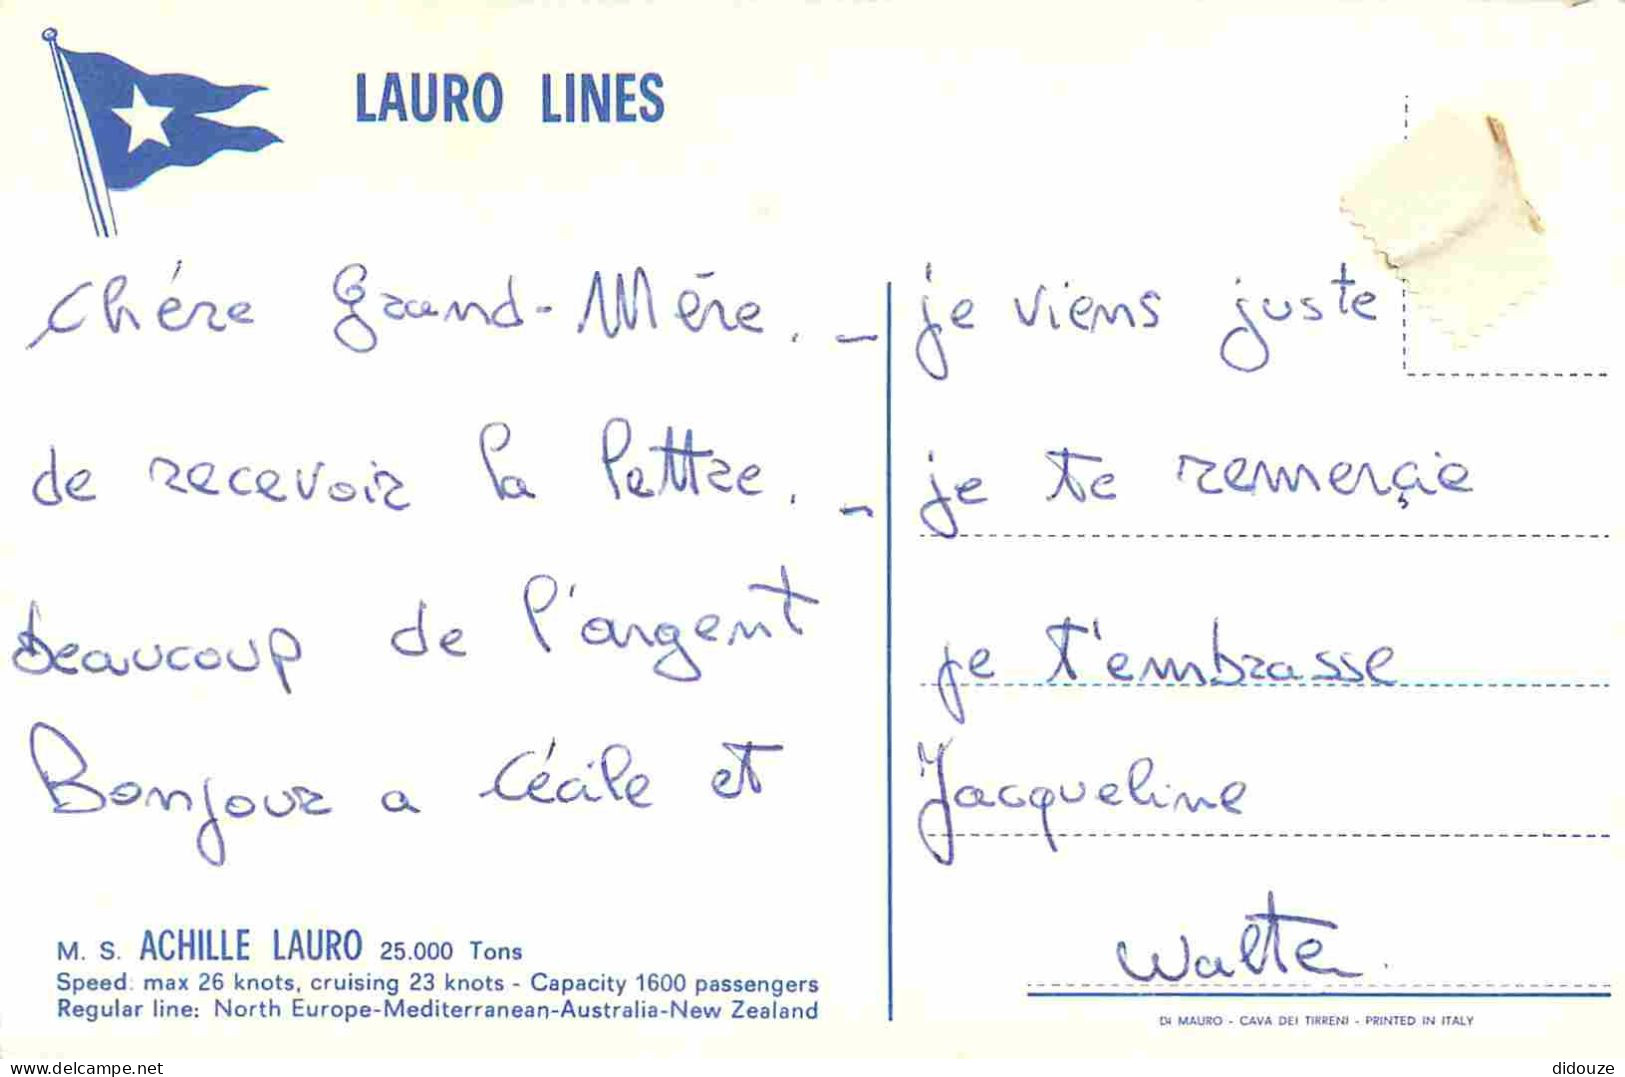 LAURO LINES
Chére Grand-Mēre. _ je viens juste
de recevoir la lettre. _ je te remerçie
beaucoup de l'argent je t'embrasse
Bonjour a Cécile et Jacqueline
Walter.
M. S. ACHILLE LAURO 25.000 Tons
Speed: max 26 knots, cruising 23 knots - Capacity 1600 passengers
Regular line: North Europe-Mediterranean-Australia-New Zealand
DI MAURO - CAVA DEI TIRRENI - PRINTED IN ITALY
https://www.delcampe.net
didouze